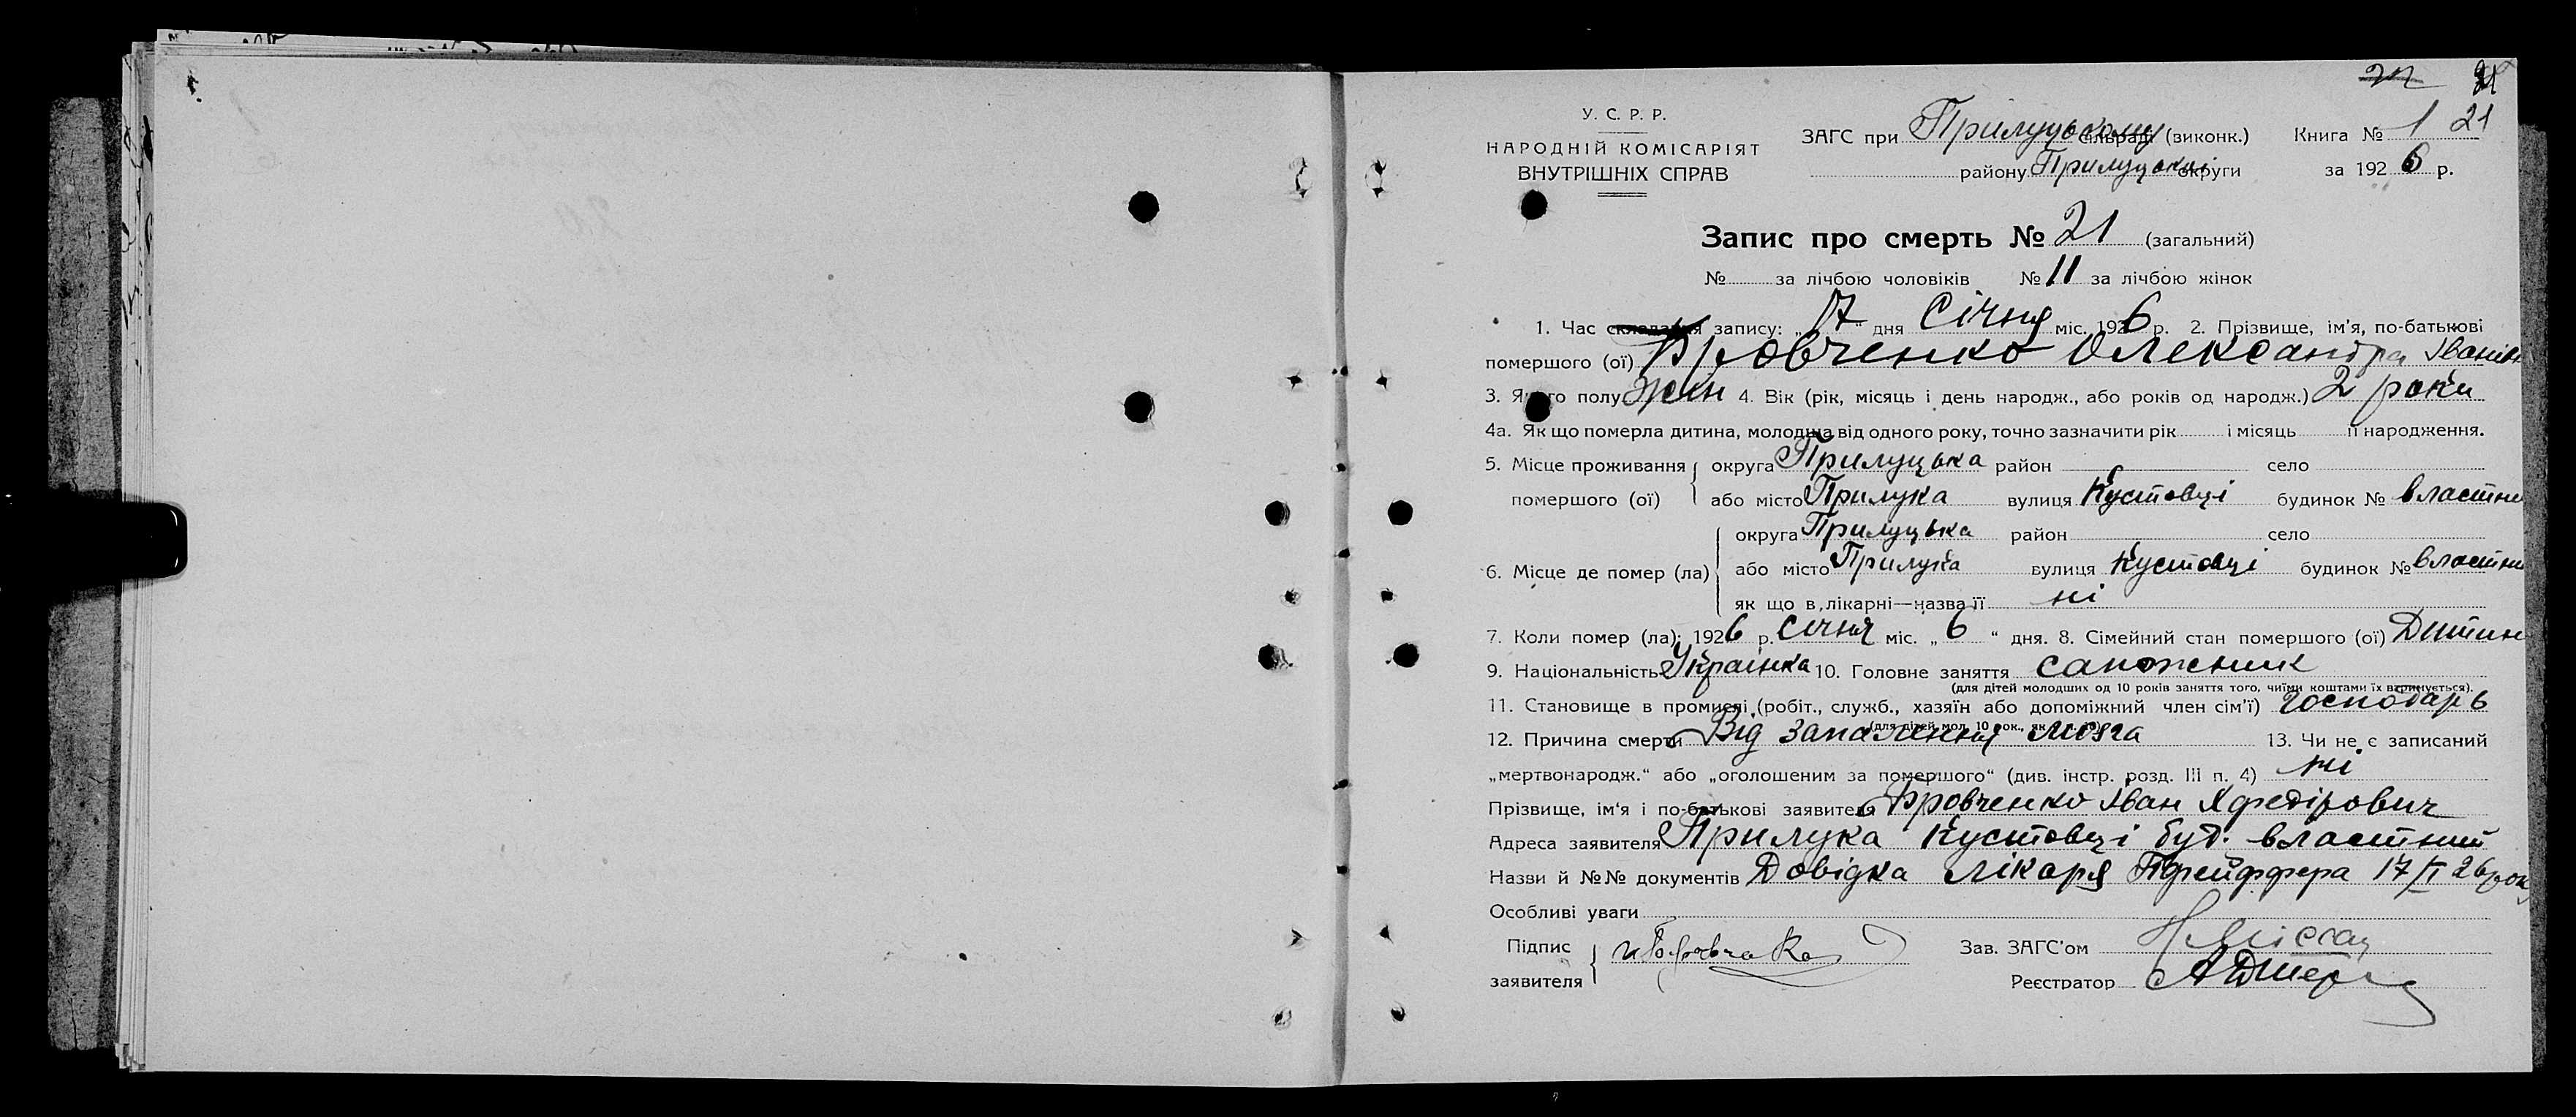 22 21
У. С. Р. Р.
НАРОДНІЙ КОМІСАРІЯТ
ВНУТРІШНІХ СПРАВ
ЗАГС при Прилуцькому сільраді (виконк.) Книга № 1 21
району Прилуцької округи за 1926 р.
Запис про смерть № 21 (загальний)
№ за лічбою чоловіків № 11 за лічбою жінок
1. Час складання запису: „17“ дня Січня міс. 1926 р. 2. Прізвище, ім'я, по-батькові
помершого (ої) Бровченко Олександра Іванівн
3. Якого полу жін 4. Вік (рік, місяць і день народж., або років од народж.) 2 роки
4а. Як що померла дитина, молодша від одного року, точно зазначити рік і місяць її народження.
5. Місце проживання округа Прилуцька район село
помершого (ої) або місто Прилука вулиця Кустовці будинок № власний
6. Місце де помер (ла) округа Прилуцька район село
або місто Прилука вулиця Кустовці будинок № власни
як що в лікарні—назва її ні
7. Коли помер (ла): 1926 р. січня міс. „6“ дня. 8. Сімейний стан помершого (ої) Дитин
9. Національність Українка 10. Головне заняття сапожник
(для дітей молодших од 10 років заняття того, чиїми коштами їх втримується).
11. Становище в промислі (робіт., служб., хазяїн або допоміжний член сім'ї) господарь
12. Причина смерти Від запалення мозга 13. Чи не є записаний
„мертвонародж.“ або „оголошеним за помершого“ (див. інстр. розд. III п. 4) ні
Прізвище, ім'я і по-батькові заявителя Бровченко Іван Хфедірович
Адреса заявителя Прилука Кустовці буд. властний
Назви й №№ документів Довідка лікаря Пфейффера 17/I 26 рок
Особливі уваги
Підпис
заявителя
Зав. ЗАГС'ом
Реєстратор